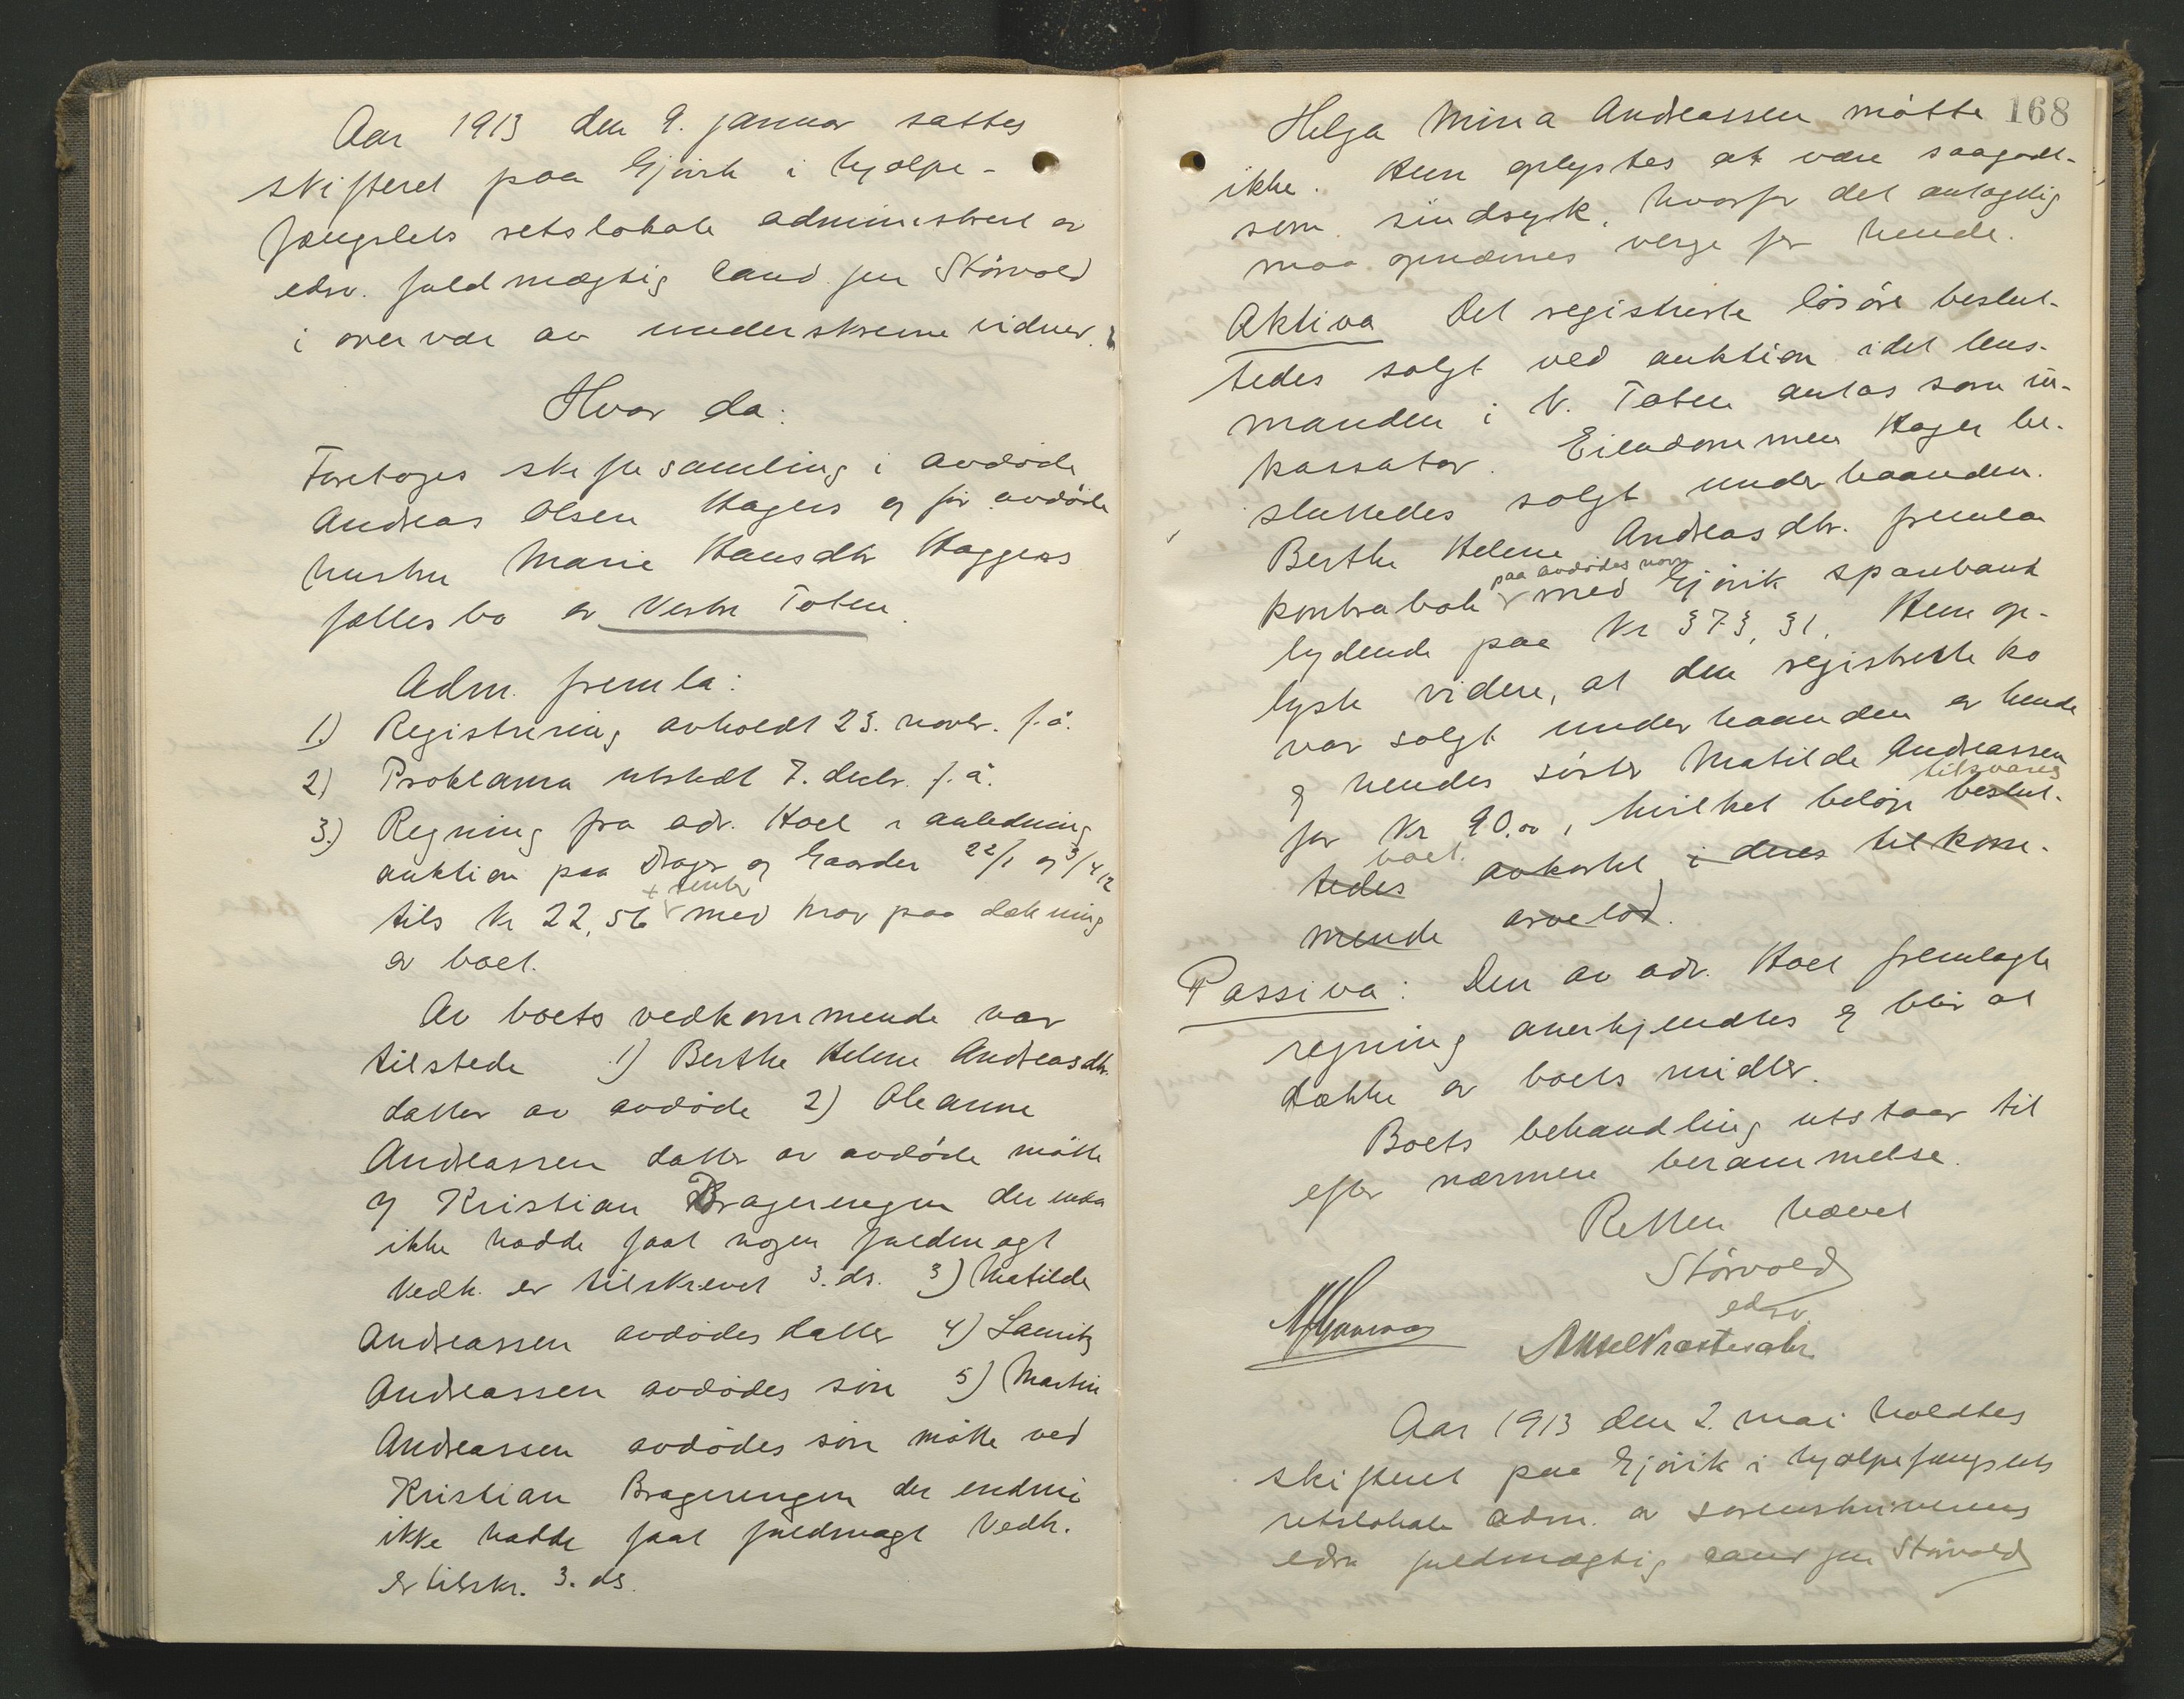 Aar 1913 den 9. januar sattes
skifteret paa Gjøvik i hjælpe-
fængslets retslokale administrert av
edsv. fuldmægtig cand. jur Størvold
i overvær av underskrevne vidner.
Hvor da:
Foretoges skiftesamling i avdøde
Andreas Olsen Hagens og før avdøde
hustru Marie Hansdtr Haggens
fællesbo av Vestre Toten.
Adm. fremla:
1.) Registrering avholdt 23. novbr. f. å.
2) Proklama utstedt 7. decbr. f. å.
3.) Regning fra adv. Hoel i anledning
auktion paa Drager og Gaarder 22/1 og 3/4 12
+ renter
tils Kr 22,56 med krav paa dækning
av boet.
Av boets vedkommende var
tilstede 1) Berthe Helene Andreasdtr.
datter av avdøde 2) Oleanne
Andreassen datter av avdøde møtte
v Kristian Bragerengen der endnu
ikke hadde faat nogen fuldmagt
Vedk. er tilskrevet 3. ds. 3) Matilde
Andreassen avdødes datter 4) Lauritz
Andreassen avdødes søn 5) Martin
Andreassen avdødes søn møtte ved
Kristian Bragerengen der endnu
ikke hadde faat fuldmagt Vedk.
er tilskr. 3. ds.
168
Helga Mina Andreassen møtte
ikke. Hun oplystes at være saagodt-
som sindsyk, hvorfor det antagelig
maa opnævnes verge for hende.
Aktiva Det registrerte løsøre beslut-
tedes solgt ved auktion idet lens-
manden i V. Toten antas som in-
kassator. Eiendommen Hagen be-
sluttedes solgt underhaanden.
Berthe Helene Andreasdtr. fremla
paa avdødes navn
kontrabok med Gjøvik sparebank
lydende paa Kr 373,31. Hun op-
lyste videre, at den registrerte ko
var solgt underhaanden av hende
og hendes søster Matilde Andreassen
tilsvares
for Kr 90.00, hvilket beløp beslut-
boet.
tedes avkortet i deres tilkom-
mende arvelod.
Passiva: Den av adv. Hoel fremlagte
regning anerkjendtes og blir at
dække av boets midler.
Boets behandling utstaar til
efter nærmere berammelse.
Retten hævet
Størvold
edsv.
Aar 1913 den 2. mai holdtes
skifteret paa Gjøvik i hjælpefængslets
retslokale adm. av sorenskriverens
edsv fuldmægtig cand jur Størvold